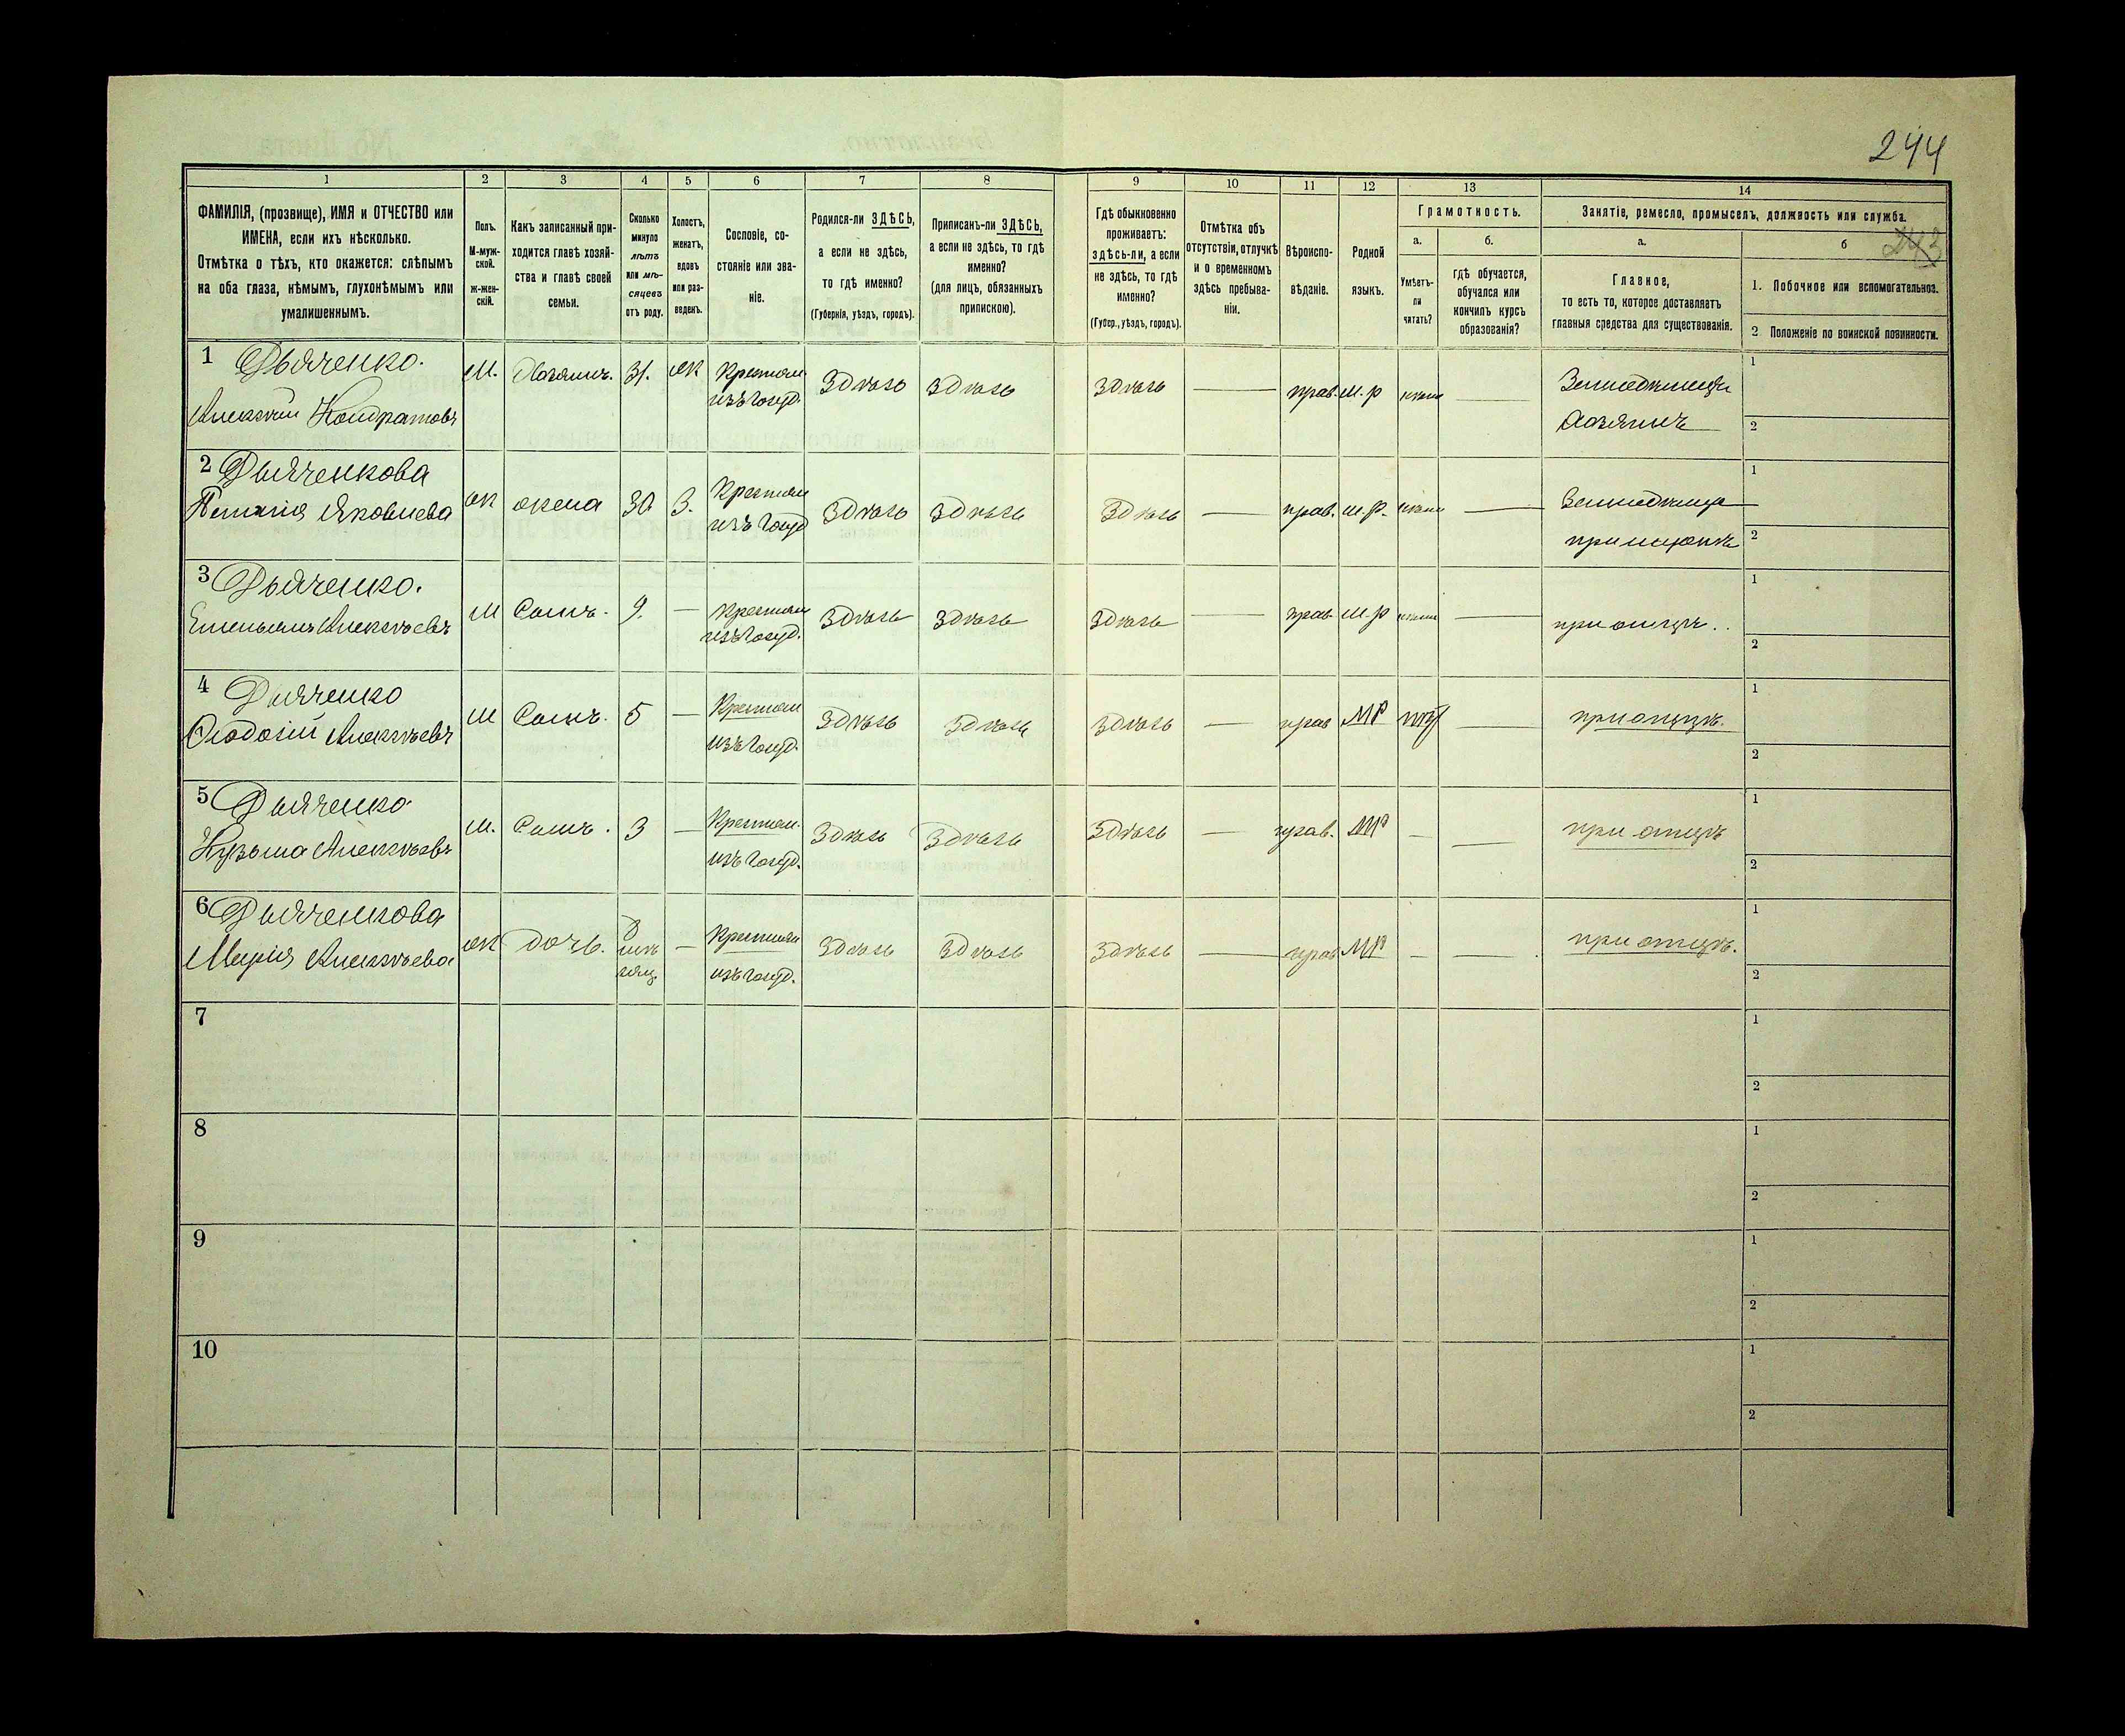 244
1 2 3 4 5 6 7 8 9 10 11 12 13 14
ФАМИЛІЯ, (прозвище), ИМЯ и ОТЧЕСТВО или
ИМЕНА, если ихъ нѣсколько.
Отмѣтка о тѣхъ, кто окажется: слѣпымъ
на оба глаза, нѣмымъ, глухонѣмымъ или
умалишеннымъ.
Полъ.
М-муж-
ской.
ж-жен-
скій.
Какъ записанный при-
ходится главѣ хозяй-
ства и главѣ своей
семьи.
Сколько
минуло
лѣтъ
или мѣ-
сяцевъ
отъ роду.
Холостъ,
женатъ,
вдовъ
или раз-
веденъ.
Сословіе, со-
стояніе или зва-
ніе.
Родился-ли ЗДѢСЬ,
а если не здѣсь,
то гдѣ именно?
(Губернія, уѣздъ, городъ).
Приписанъ-ли ЗДѢСЬ,
а если не здѣсь, то гдѣ
именно?
(для лицъ, обязанныхъ
припискою).
Гдѣ обыкновенно
проживаетъ:
здѣсь-ли, а если
не здѣсь, то гдѣ
именно?
(Губер., уѣздъ, городъ).
Отмѣтка объ
отсутствіи, отлучкѣ
и о временномъ
здѣсь пребыва-
ніи.
Вѣроиспо-
вѣданіе.
Родной
языкъ.
Грамотность.
а.
Умѣетъ-
ли
читать?
б.
гдѣ обучается,
обучался или
кончилъ курсъ
образованія?
Занятіе, ремесло, промыселъ, должность или служба.
а.
Главное,
то есть то, которое доставляетъ
главныя средства для существованія.
б
243
1. Побочное или вспомогательное.
2 Положеніе по воинской повинности.
1 Дьяченко. М. Хозяинъ. 31. ж Крестьян здѣсь здѣсь здѣсь — прав. м.р — Земледѣлецъ 1
Алексѣй Кондратовъ изъ госуд. Хозяинъ 2
2 Дьяченкова ж жена 30 З. Крестьян здѣсь здѣсь здѣсь — прав. м.р. — 1
Яковлева изъ госуд 2
3 Дьяченко. М Сынъ. 9. — Крестьян здѣсь здѣсь здѣсь — прав м.р — при отцѣ.. 1
Емельянъ Алексѣевъ изъ госуд. 2
4 Дьяченко М Сынъ. 5 — Крестьян здѣсь здѣсь здѣсь — прав МР — при отцѣ. 1
Ѳеодосій Алексѣевъ изъ госуд. 2
5 Дьяченко М. Сынъ. 3 — Крестьян. здѣсь здѣсь здѣсь — прав. МР — — при отцѣ 1
Кузьма Алексѣевъ изъ госуд. 2
6 Дьяченкова ж дочь. — Крестьян здѣсь здѣсь здѣсь — прав МР — — при отцѣ. 1
Марія Алексѣева изъ госуд. 2
7 1
2
8 1
2
9 1
2
10 1
2